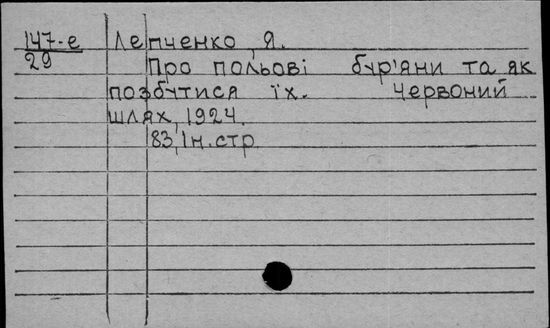 147-е Лепченко, Я.
29
Про польові бур'яни та як
позбутися їх. Червоний
шлях, 1924.
83, 1н. стр.